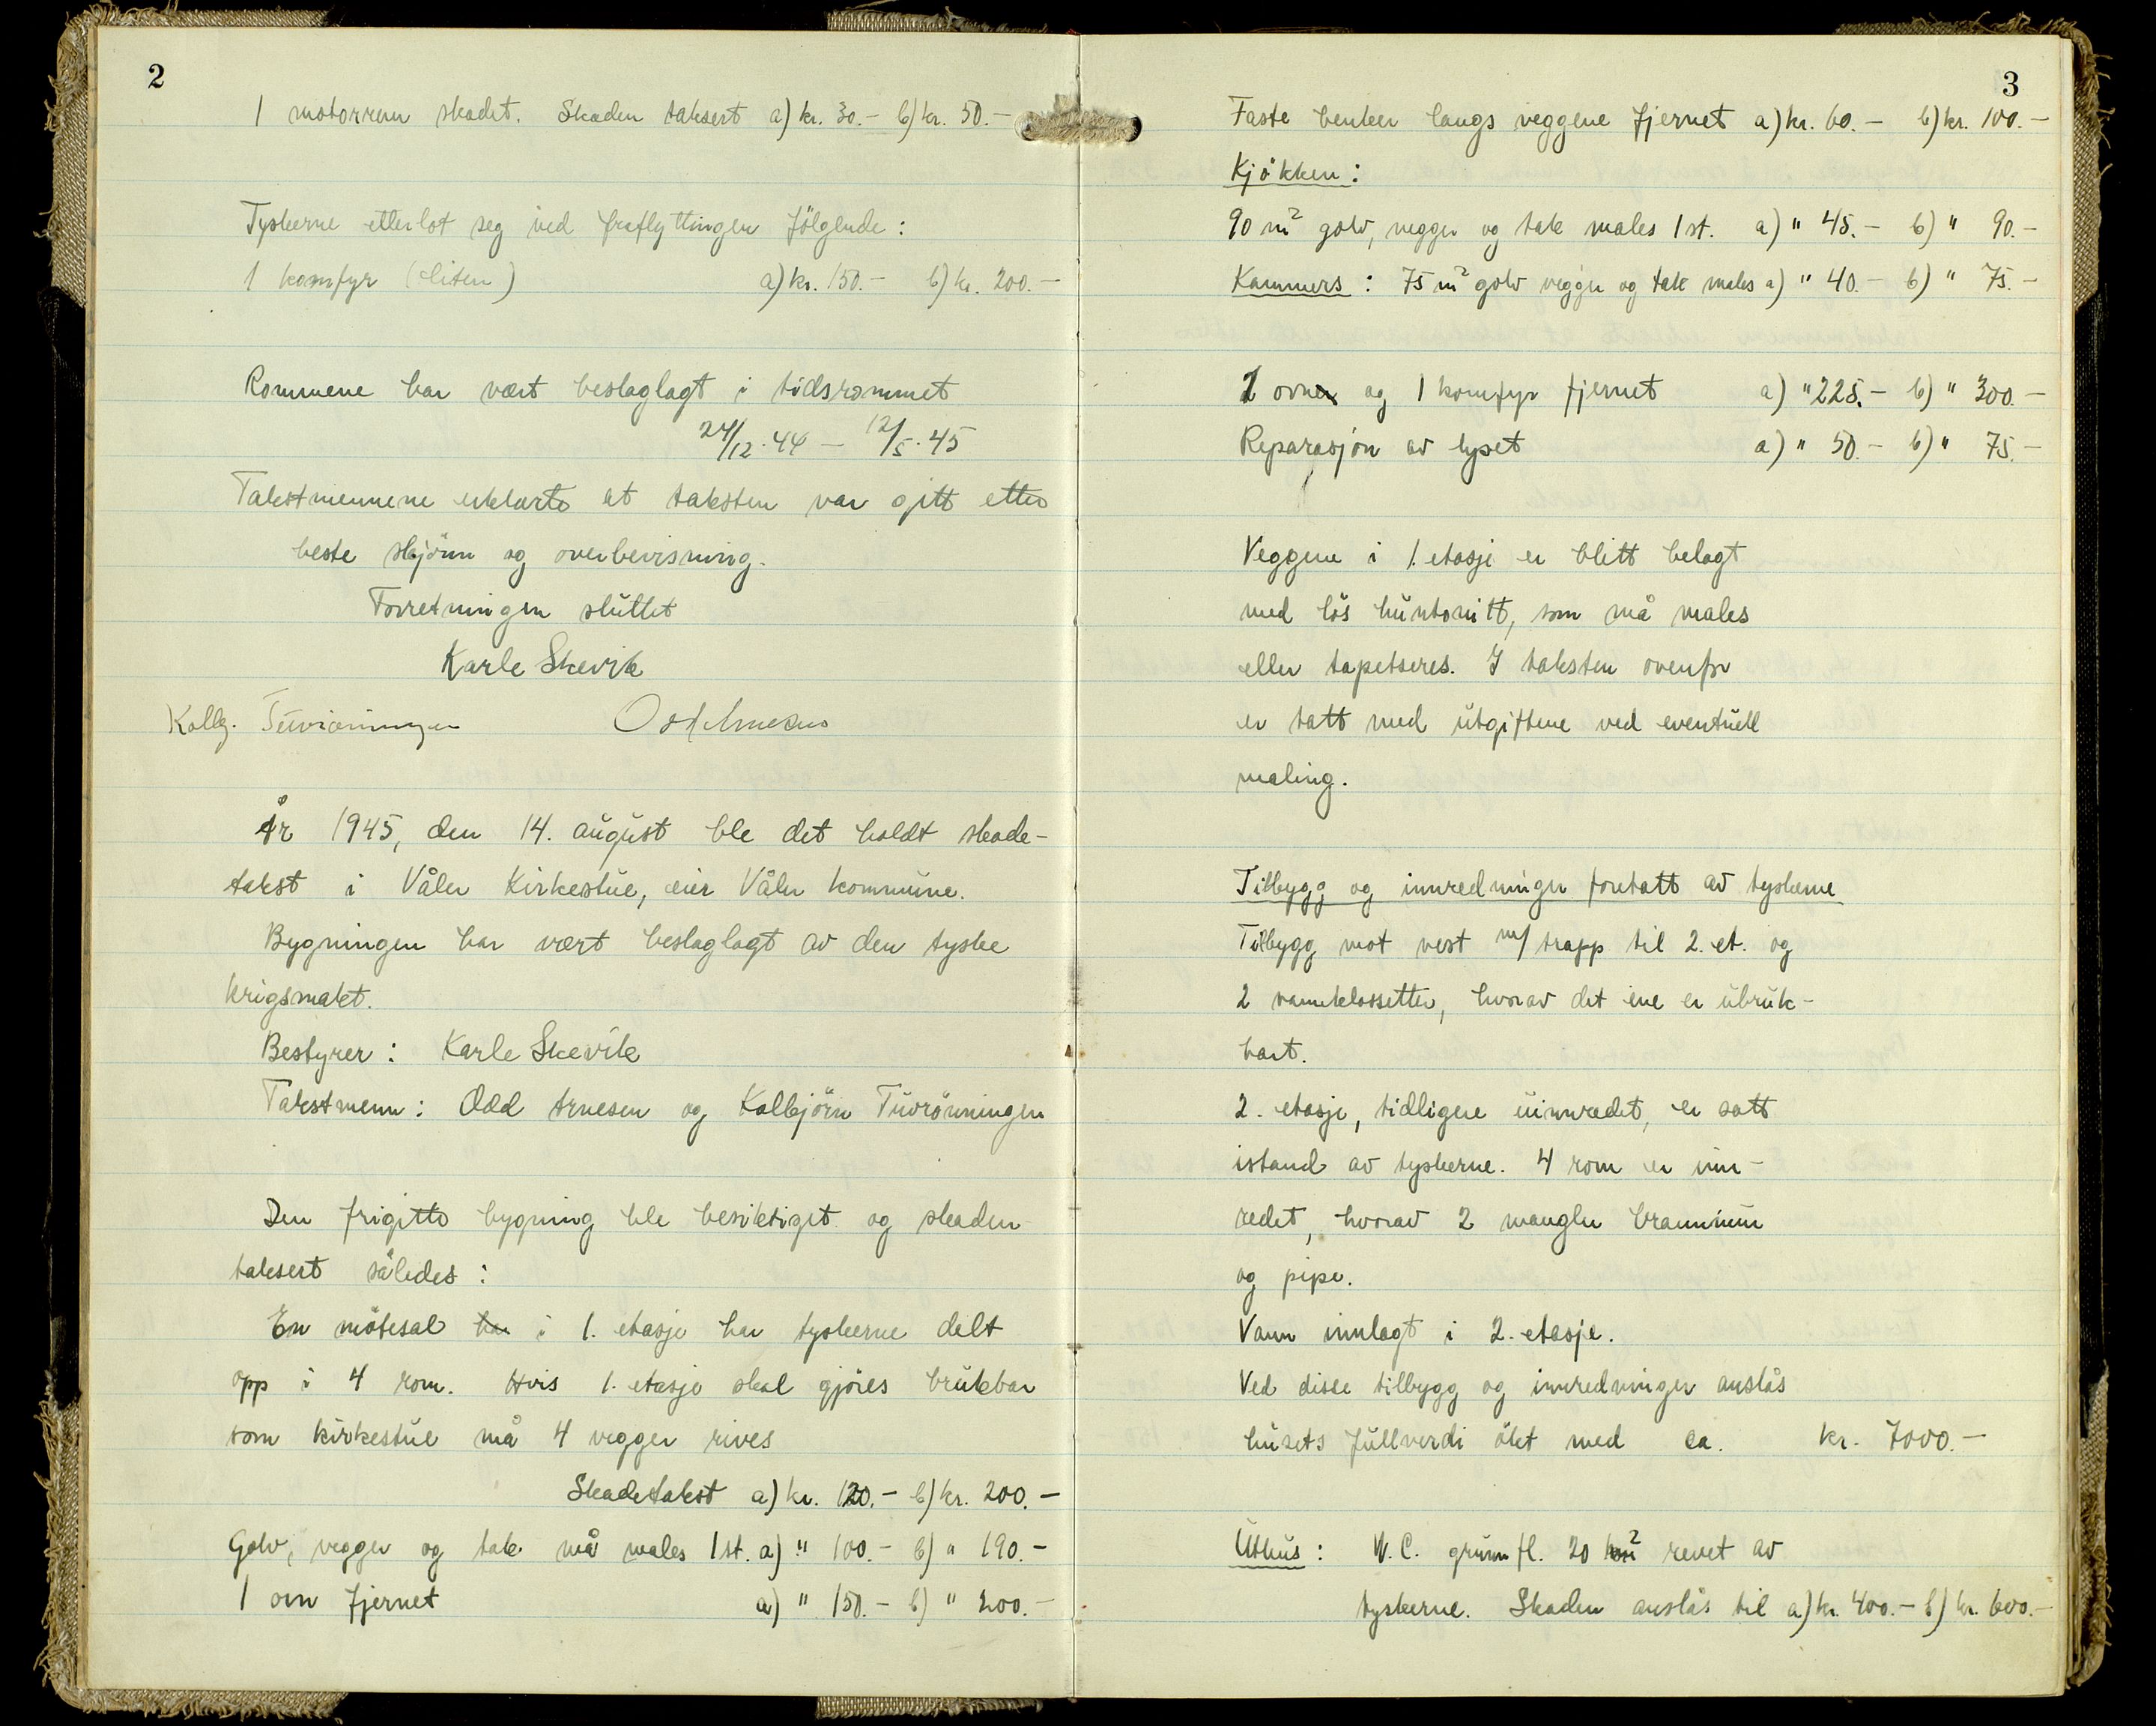 2
1 motorrem skadet. Skaden taksert a) kr. 30.- b) kr. 50.-
Tyskerne etterlot seg ved fraflyttingen fölgende:
1 komfyr (liten) a) kr. 150.- b) kr. 200.-
Rommene har vært beslaglagt i tidsrommet
24/12.44 - 12/5.45
Takstmennene erklærte at taksten var gitt etter
beste skjönn og overbevisning.
Forretningen sluttet
Karle Skevik
Kolbj. Tuvrönningen
År 1945, den 14. august ble det holdt skade-
takst i Våler Kirkestue, eier Våler kommune.
Bygningen har vært beslaglagt av den tyske
krigsmakt.
Bestyrer: Karle Skevik
Takstmenn: Odd Arnesen og Kolbjörn Tuvrönningen
Den frigitte bygning ble besiktiget og skaden
taksert således:
En mötesal har i 1. etasje har tyskerne delt
opp i 4 rom. Hvis 1. etasje skal gjöres brukbar
som kirkestue må 4 vegger rives
Skadetakst a) kr. 120.- b) kr. 200.-
Golv, vegger og tak må males 1 st. a) " 100.- b) " 190.-
1 ovn fjernet a) " 150.- b) " 200.-
3
Faste benker langs veggene fjernet a) kr. 60.- b) kr. 100.-
Kjökken:
90 m² golv, vegger og tak males 1 st. a) " 45.- b) " 90.-
Kammers: 75 m² golv vegger og tak males a) " 40.- b) " 75.-
1 ovn og 1 komfyr fjernet a) " 225.- b) " 300.-
Reparasjon av lyset a) " 50.- b) " 75.-
Veggene i 1. etasje er blitt belagt
med lös huntonitt, som må males
eller tapetseres. I taksten ovenfor
er tatt med utgiftene ved eventuell
maling.
Tilbygg og innredninger foretatt av tyskerne
Tilbygg mot vest m/ trapp til 2. et. og
2 vannklossetter, hvorav det ene er ubruk-
bart.
2. etasje, tidligere uinnredet, er satt
istand av tyskerne. 4 rom er inn-
redet, hvorav 2 mangler brannmur
og pipe.
Vann innlagt i 2. etasje.
Ved disse tilbygg og innredninger anslås
husets fullverdi öket med ca. kr. 7000.-
Uthus: W.C. grunnfl. 20 m² revet av
tyskerne. Skaden anslås til a) kr. 400.- b) kr. 600.-